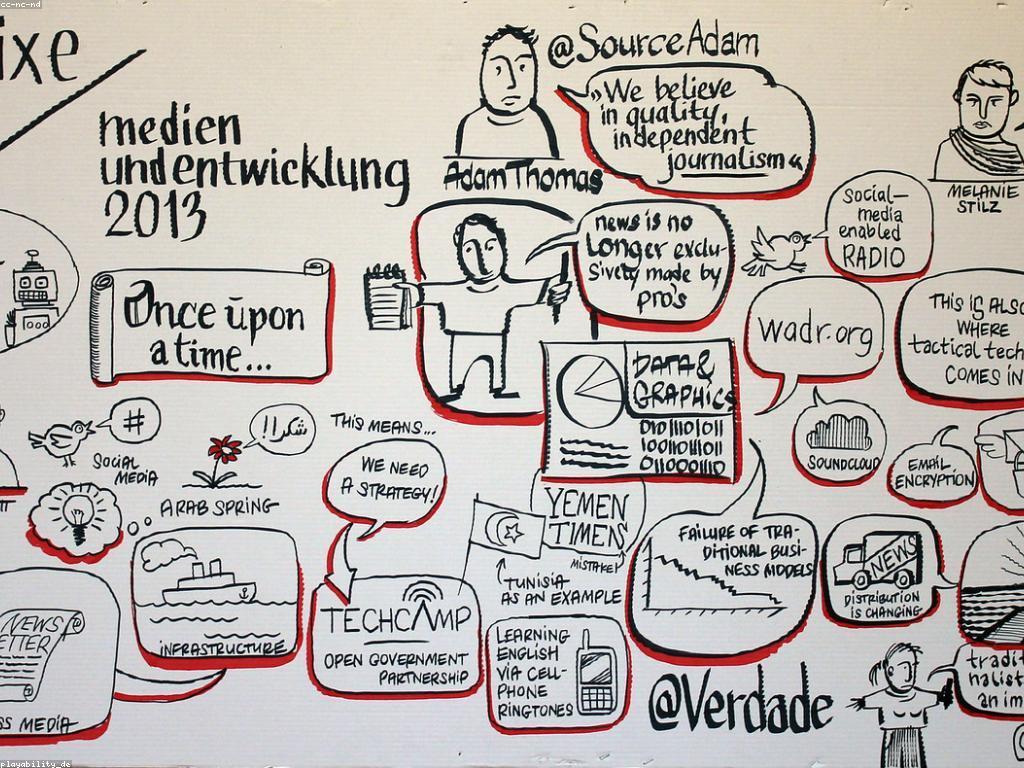 cc-nc-nd
ixe
medien
und entwicklung
2013
@SourceAdam
"We believe
in quality,
independent
journalism"
Adam Thomas
MELANIE
STILZ
Social-
media
enabled
RADIO
news is no
Longer exclu-
sively made by
pro's
Once upon
a time...
wadr.org
THIS IS ALSO
WHERE
tactical tech
COMES IN
DATA &
GRAPHICS
#
SOCIAL
MEDIA
شكرا!!
ARAB SPRING
THIS MEANS...
WE NEED
A STRATEGY!
SOUNDCLOUD
EMAIL
ENCRYPTION
YEMEN
TIMES
MISTAKE!
TUNISIA
AS AN EXAMPLE
FAILURE OF TRA-
DITIONAL BUSI-
NESS MODELS
NEWS
DISTRIBUTION
IS CHANGING
INFRASTRUCTURE
TECHCAMP
OPEN GOVERNMENT
PARTNERSHIP
LEARNING
ENGLISH
VIA CELL-
PHONE
RINGTONES
NEWS
ETTER
SS MEDIA
@Verdade
tradit
nalist
an im
playability_de